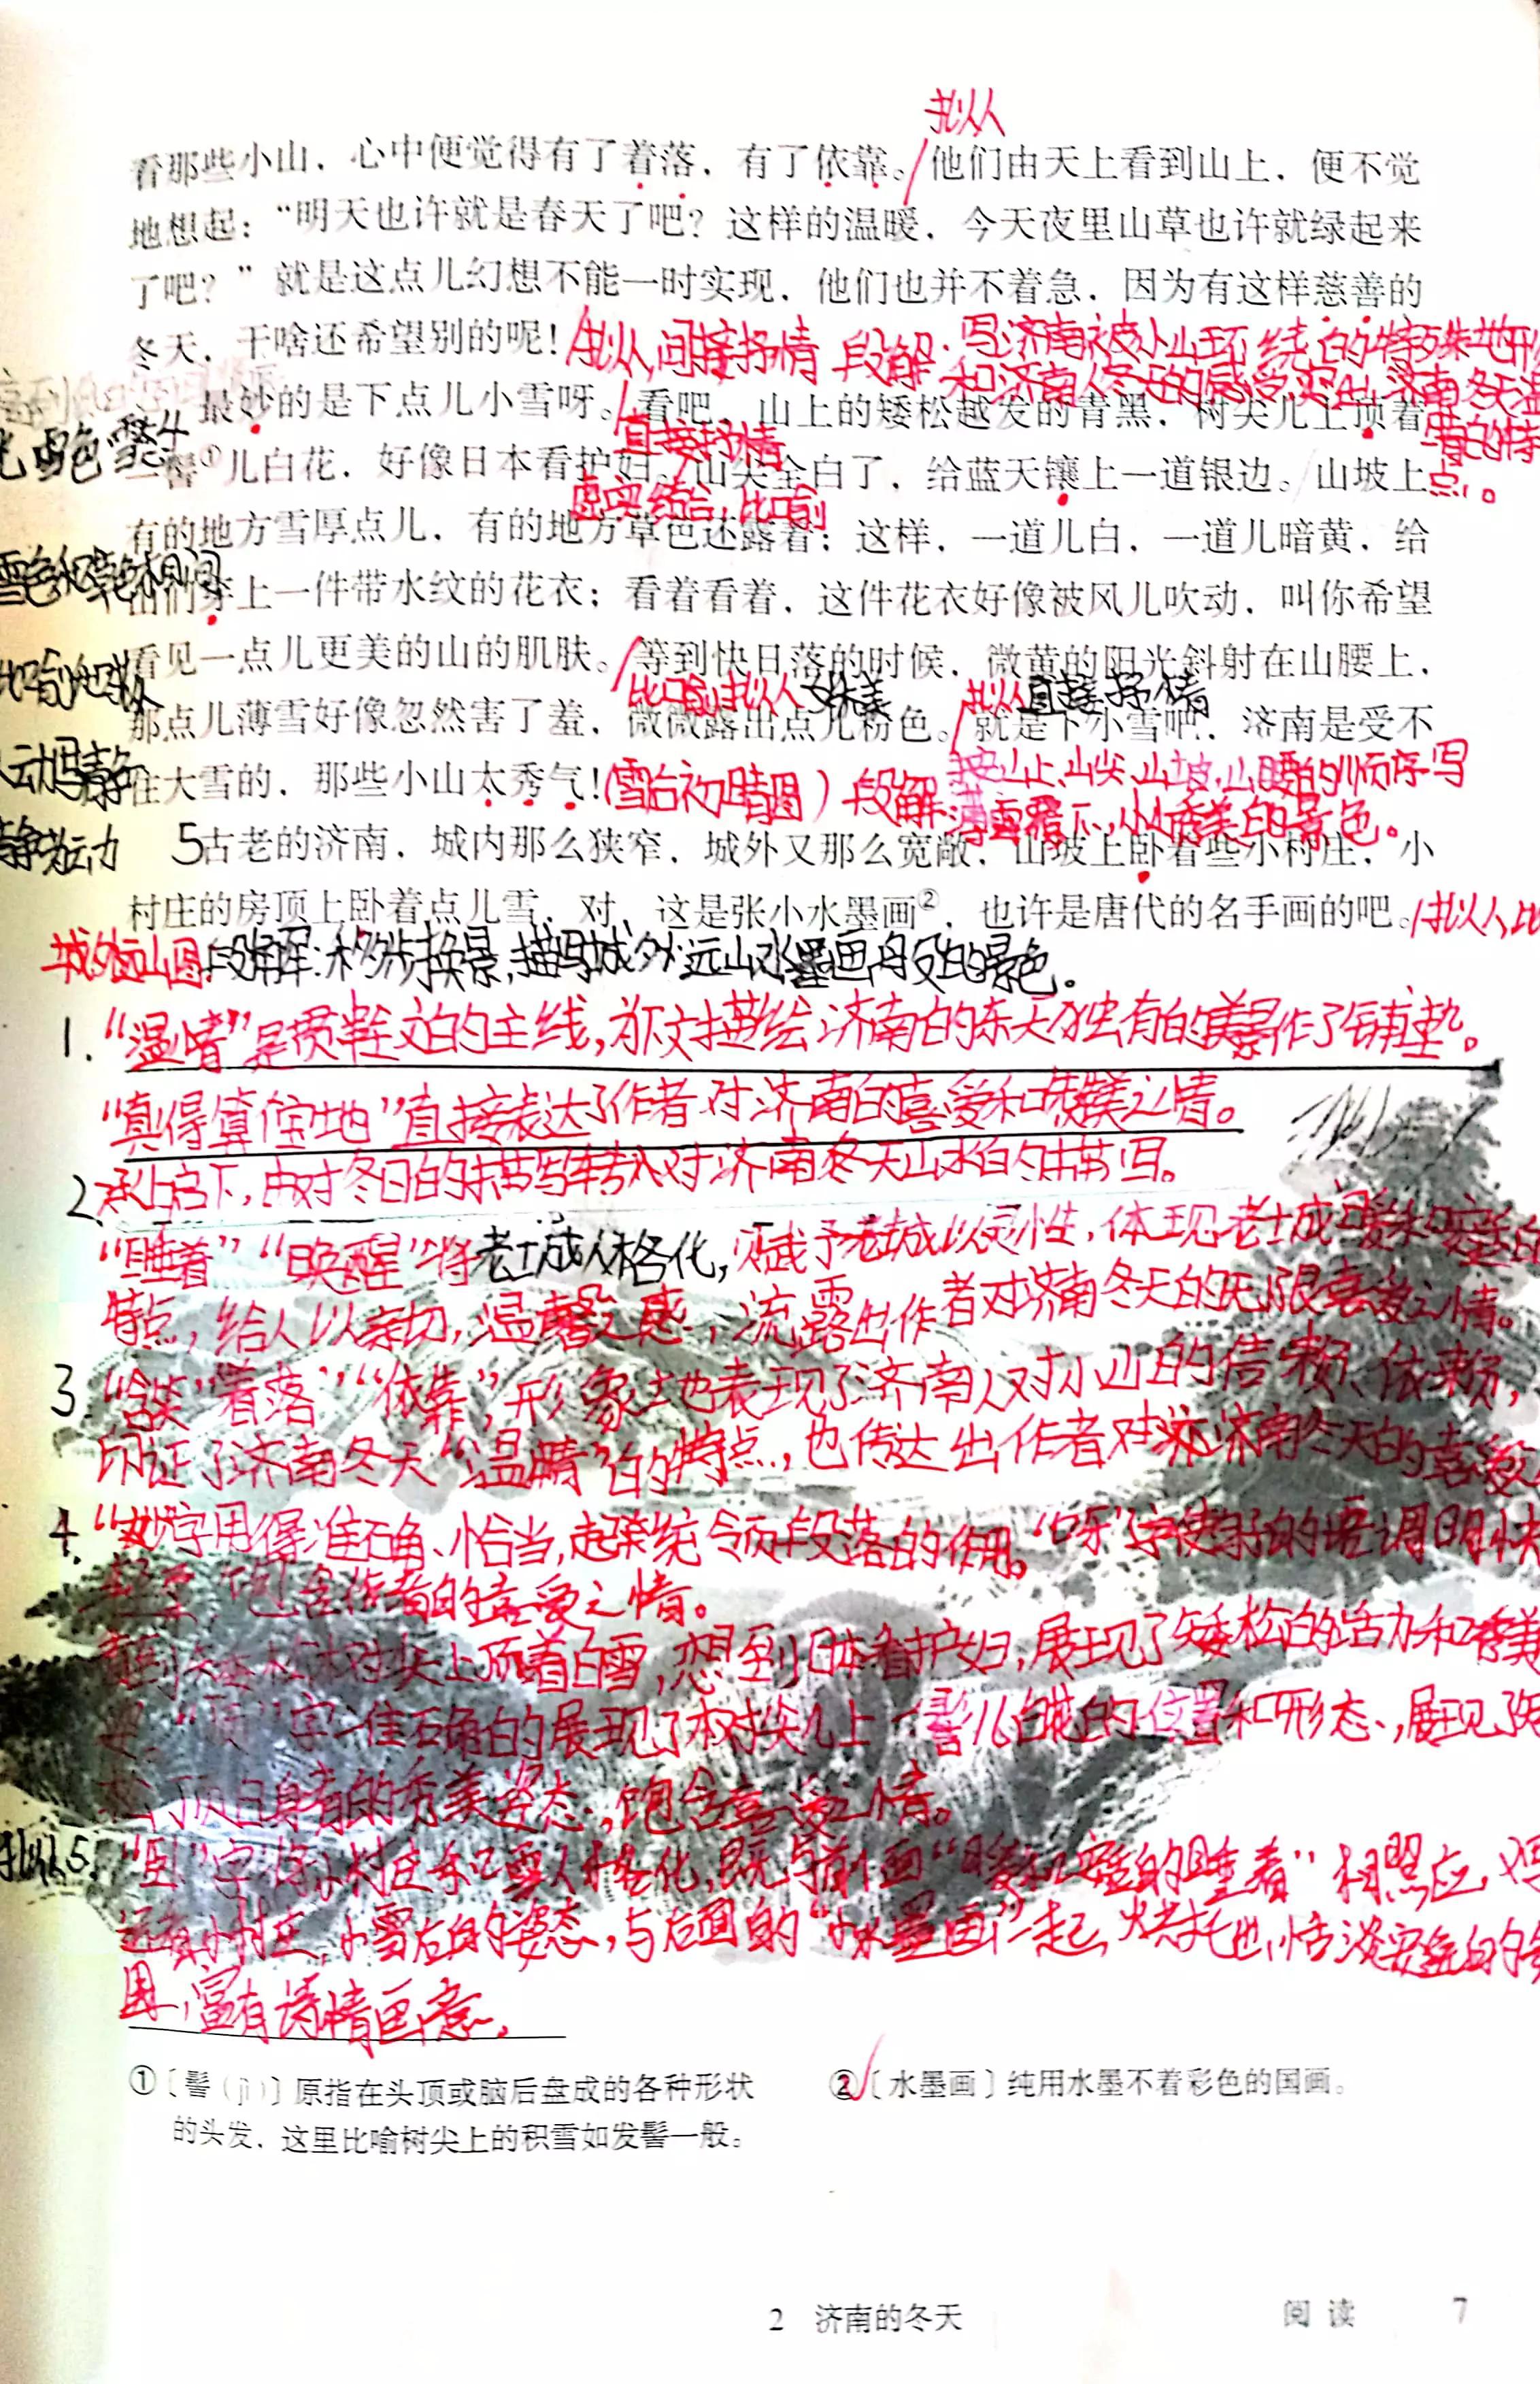 拟人
看那些小山，心中便觉得有了着落，有了依靠。他们由天上看到山上，便不觉
地想起：“明天也许就是春天了吧？这样的温暖，今天夜里山草也许就绿起来
了吧？”就是这点儿幻想不能一时实现，他们也并不着急，因为有这样慈善的
冬天，干啥还希望别的呢！
拟人,间接抒情 段解：写济南被小山环绕的特殊地形
和济南人冬天的感受,突出济南冬天温
晴的特
点。
4
最妙的是下点儿小雪呀。看吧，山上的矮松越发的青黑，树尖儿上顶着
直接抒情
一髻①儿白花，好像日本看护妇。山尖全白了，给蓝天镶上一道银边。山坡上
虚实结合,比喻
有的地方雪厚点儿，有的地方草色还露着；这样，一道儿白，一道儿暗黄，给
雪色和草色相间
山们穿上一件带水纹的花衣；看着看着，这件花衣好像被风儿吹动，叫你希望
看见一点儿更美的山的肌肤。等到快日落的时候，微黄的阳光斜射在山腰上，
比喻,拟人 拟人 直接抒情
那点儿薄雪好像忽然害了羞，微微露出点儿粉色。就是下小雪吧，济南是受不
住大雪的，那些小山太秀气！
动写静
(雪后初晴图) 段解:按山上、山尖、山坡、山腰的顺序写
薄雪覆盖下,小山秀美的景色。
5古老的济南，城内那么狭窄，城外又那么宽敞，山坡上卧着些小村庄，小
村庄的房顶上卧着点儿雪，对，这是张小水墨画②，也许是唐代的名手画的吧。
拟人,比
城外远山图 段解:移步换景,描写城外远山水墨画般的景色。
1. “温晴”是贯穿全文的主线,为下文描绘济南的冬天独有的美景作了铺垫。
“真得算个宝地”直接表达了作者对济南的喜爱和赞美之情。
2.承上启下,由对冬日的描写转入对济南冬天山水的描写。
“睡着”“唤醒”将老城人格化,赋予老城以灵性,体现老城暖和安适的
特点,给人以亲切,温馨之感,流露出作者对济南冬天的无限喜爱之情。
3.“含笑”“着落”“依靠”,形象地表现了济南人对小山的信赖、依赖,
印证了济南冬天“温晴”的特点,也传达出作者对济南冬天的喜爱
4.“妙”字用得准确、恰当,起到统领段落的作用。“呀”字使句子的语调明快
包含作者的喜爱之情。
树尖上顶着白雪,想到日本看护妇,展现了矮松的活力和秀美
“顶”字准确的展现了树尖儿上一髻儿白花的位置和形态,展现了
的秀美姿态,饱含喜爱之情。
拟人5. “卧”字将小村庄和雪人格化,既与前面“暖和安适的睡着”相照应,
小村庄、小雪后的姿态,与后面的“小水墨画”一起,烘托恬淡安适的
围,富有诗情画意。
①〔髻（jì）〕原指在头顶或脑后盘成的各种形状
的头发，这里比喻树尖上的积雪如发髻一般。
②〔水墨画〕纯用水墨不着彩色的国画。
2 济南的冬天
阅读 7